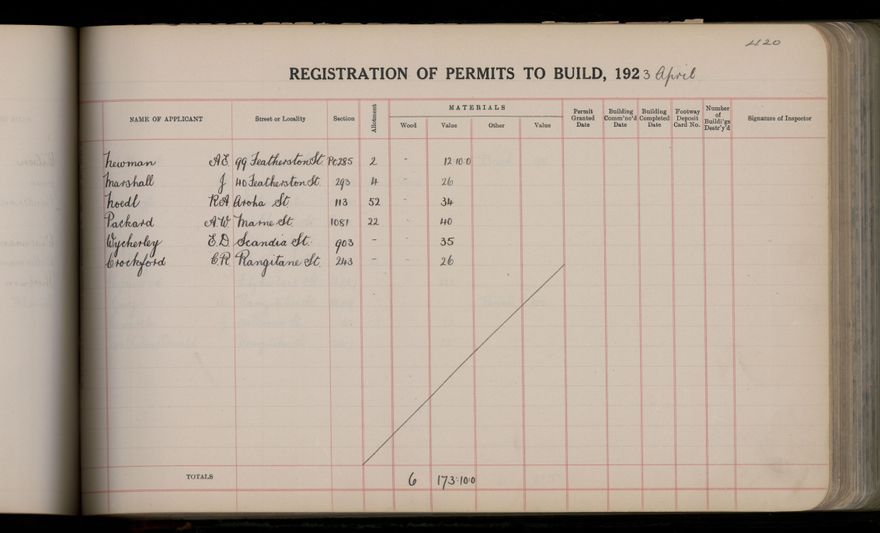 4120
REGISTRATION OF PERMITS TO BUILD, 1923 April
NAME OF APPLICANT Street or Locality Section Allotment MATERIALS Wood Value Other Value Permit Granted Date Building Comm'nc'd Date Building Completed Date Footway Deposit Card No. Number of Buildi'gs Destr'y'd Signature of Inspector
Newman A E 99 Featherston St Pt 285 2 - 12 10 0
Marshall J 40 Featherston St 293 4 - 26
Noedl R A Aroha St 113 52 - 34
Packard A W Marne St 1081 22 - 40
Wycherley E D Scandia St. 903 - - 35
Crockford C R Rangitane St 243 - - 26
TOTALS 6 173 10 0